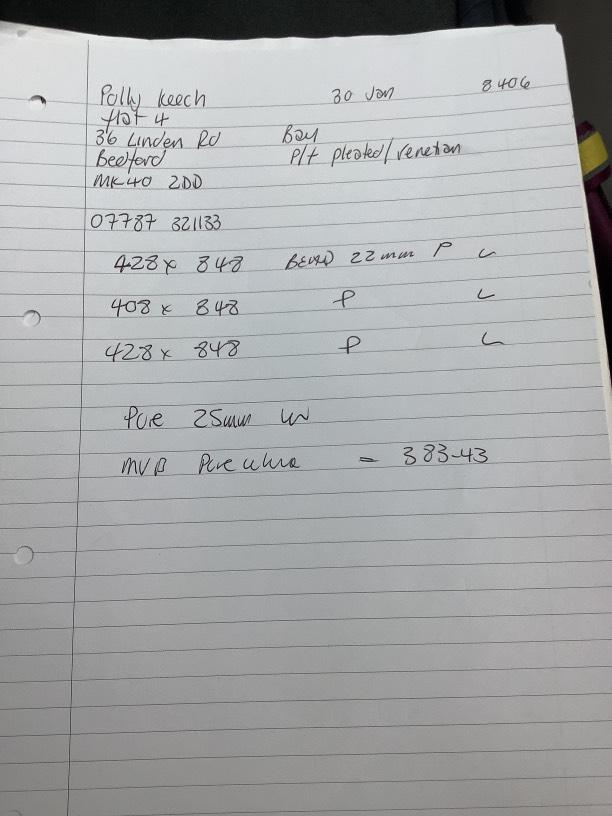 Polly Keech 30 Jan 8406
flat 4
36 Linden Rd Bay
Bedford P/t pleated/venetian
MK40 2DD
07787 321133
428 x 848 BEVAD 22mm P L
408 x 848 P L
428 x 848 P L
Pure 25mm W
MVB Pure white = 383-43